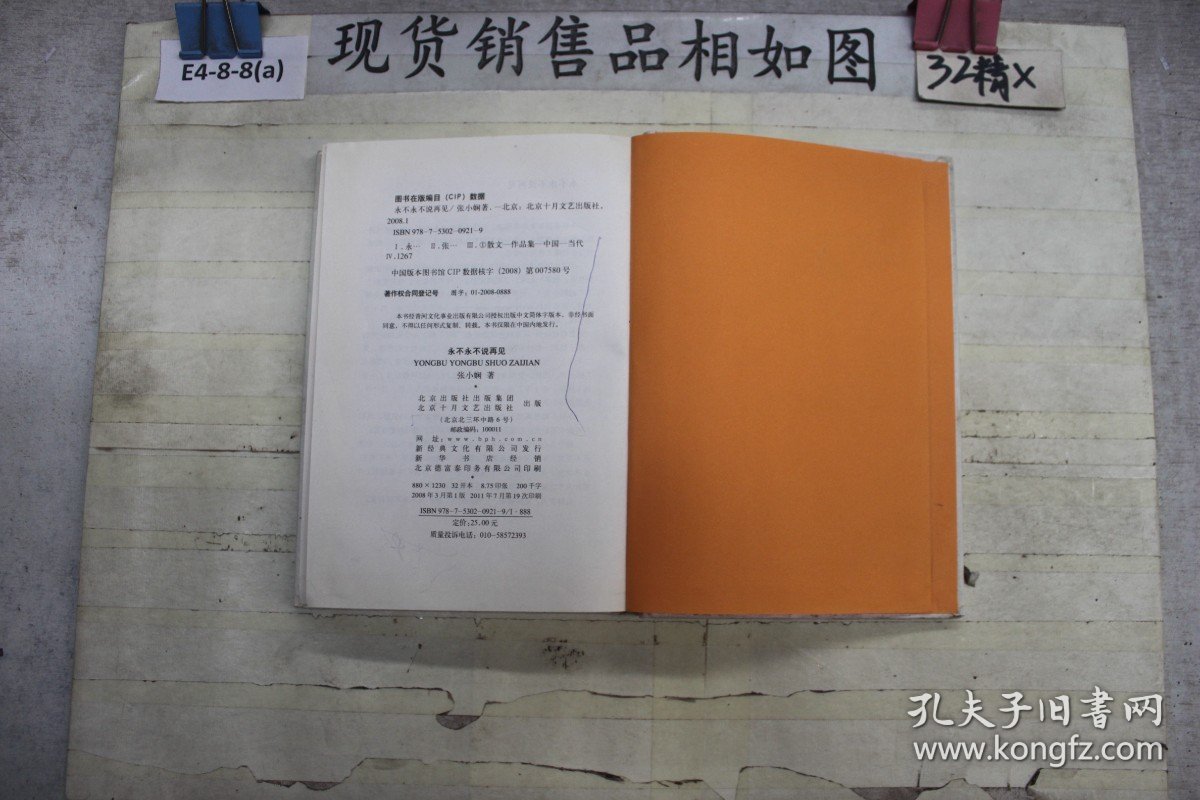 现货销售品相如图
E4-8-8(a)
32精x
图书在版编目（CIP）数据
永不永不说再见／张小娴著．—北京：北京十月文艺出版社，
2008.1
ISBN 978-7-5302-0921-9
Ⅰ.永… Ⅱ.张… Ⅲ.①散文—作品集—中国—当代
Ⅳ.I267
中国版本图书馆CIP数据核字（2008）第007580号
著作权合同登记号 图字：01-2008-0888
本书经青河文化事业出版有限公司授权出版中文简体字版本，非经书面
同意，不得以任何形式复制、转载。本书仅限在中国内地发行。
永不永不说再见
YONGBU YONGBU SHUO ZAIJIAN
张小娴 著
*
北京出版社出版集团
北京十月文艺出版社 出版
（北京北三环中路6号）
邮政编码：100011
网 址：www.bph.com.cn
新经典文化有限公司发行
新 华 书 店 经 销
北京德富泰印务有限公司印刷
*
880×1230 32开本 8.75印张 200千字
2008年3月第1版 2011年7月第19次印刷
ISBN 978-7-5302-0921-9/I·888
定价：25.00元
质量投诉电话：010-58572393
孔夫子旧书网
www.kongfz.com